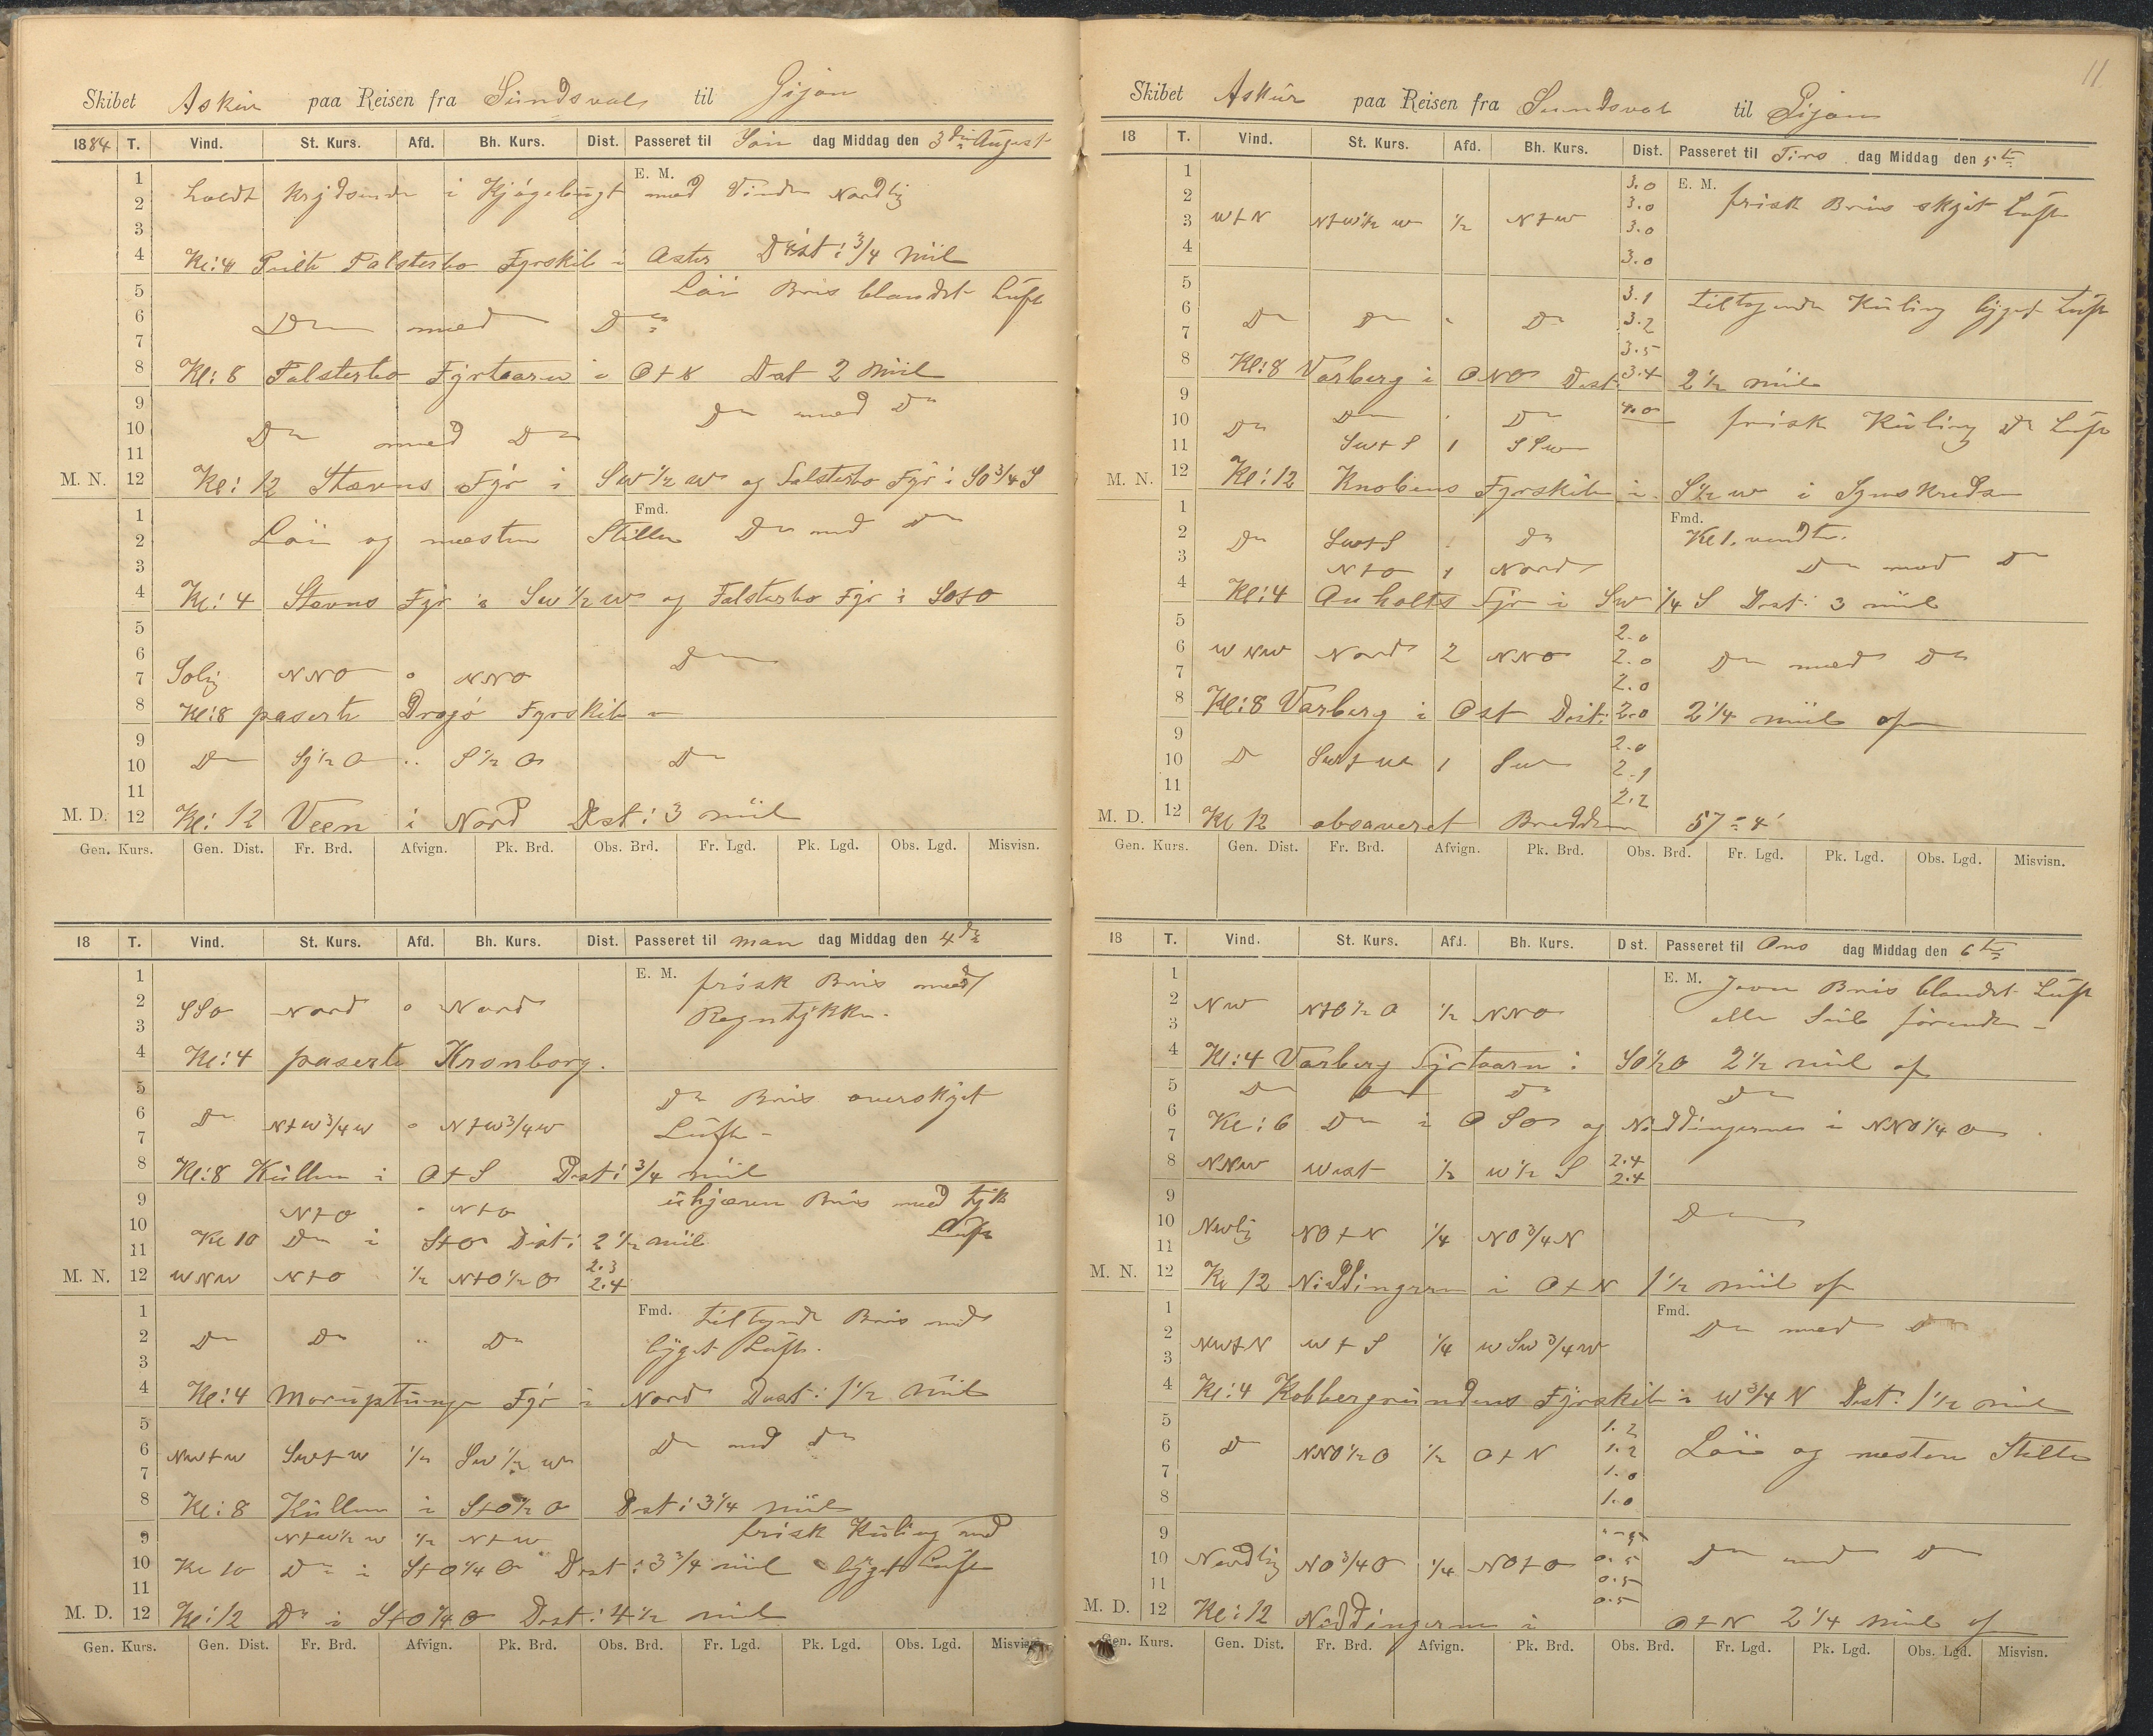 Skibet Askur paa Reisen fra Sundsval til Gijon
1884 T. Vind. St. Kurs. Afd. Bh. Kurs. Dist. Passeret til Søn dag Middag den 3die August
1 E. M.
2 holdt krydsende i Kjøgebugt med Vinden Nordlig
3
4 Kl: 4 Peilte Falsterbo Fyrskib i Oster Dist: 3/4 Miil
5 Løi Bris blandet Luft
6 Do med Do
7
8 Kl: 8 Falsterbo Fyrtaarn i O+S Dist 2 Miil
9 Do med Do
10 Do med Do
11
M. N. 12 Kl: 12 Stævns Fyr i SW 1/2 W og Falsterbo Fyr i SO 3/4 S
1 Fmd.
2 Løi og næsten Stille Do med Do
3
4 Kl: 4 Stevns Fyr i SW 1/2 W og Falsterbo Fyr i SO+O
5
6 Do
7 Solig NNO o NNO
8 Kl: 8 paserte Dragø Fyrskib
9
10 Do S 1/2 O .. S 1/2 O Do
11
M. D. 12 Kl: 12 Veen i Nord Dist: 3 miil
Gen. Kurs. Gen. Dist. Fr. Brd. Afvign. Pk. Brd. Obs. Brd. Fr. Lgd. Pk. Lgd. Obs. Lgd. Misvisn.
18 T. Vind. St. Kurs. Afd. Bh. Kurs. Dist. Passeret til Man dag Middag den 4de
1 E. M. frisk Bris med
2 SSO Nord o Nord Regntykke.
3
4 Kl: 4 paserte Kronborg.
5 Do Bris overskyet
6 Do N+W 3/4 W o N+W 3/4 W Luft
7
8 Kl: 8 Kullen i O+S Dist: 3/4 miil
9 N+O " N+O ukjævn Bris med tyk
10 Kl 10 Do i S+O Dist: 2 1/2 miil Luft
11 2.3
M. N. 12 WNW N+O 1/2 N+O 1/2 O 2.4
1 Fmd. tiltagende Bris med
2 Do Do .. Do byget Luft.
3
4 Kl: 4 Moruptunge Fyr i Nord Dist: 1 1/2 Miil
5
6 NW+W SW+W 1/2 SW 1/2 W Do med Do
7
8 Kl: 8 Kullen i S+O 1/2 O Dist: 3 1/4 miil
9 N+W 1/2 W 1/2 N+W frisk Kuling med
10 Kl 10 Do i S+O 1/4 O Dist: 3 3/4 miil byget Luft
11
M. D. 12 Kl: 12 Do i S+O 1/4 O Dist: 4 1/2 miil
Gen. Kurs. Gen. Dist. Fr. Brd. Afvign. Pk. Brd. Obs. Brd. Fr. Lgd. Pk. Lgd. Obs. Lgd. Misvisn.
11
Skibet Askur paa Reisen fra Sundsval til Gijon
18 T. Vind. St. Kurs. Afd. Bh. Kurs. Dist. Passeret til Tirs dag Middag den 5te
1 3.0 E. M.
2 3.0 frisk Bris skyet Luft
3 W+N N+W 1/2 W 1/2 N+W 3.0
4 3.0
5 3.1 tiltagende Kuling byget Luft
6 Do Do " Do 3.2
7 3.5
8 Kl: 8 Varberg i ONO Dist: 3.4 2 1/2 miil
9 Do " Do 4.0
10 Do frisk Kuling Do Luft
11 SW+S 1 SSW
M. N. 12 Kl: 12 Knobens Fyrskib i S 1/2 W i Synskreds
1 Fmd.
2 Do SW+S " Do Kl 1. vendte.
3 N+O 1 Nord Do med Do
4 Kl: 4 Anholts Fyr i SW 1/4 S Dist: 3 miil
5 2.0
6 WNW Nord 2 NNO 2.0 Do med Do
7 2.0
8 Kl: 8 Varberg i Ost Dist: 2.0 2 1/4 miil of
9 2.0
10 Do SW+W 1 SW 2.1
11 2.2
M. D. 12 Kl 12 observeret Bredden 57° 4'
Gen. Kurs. Gen. Dist. Fr. Brd. Afvign. Pk. Brd. Obs. Brd. Fr. Lgd. Pk. Lgd. Obs. Lgd. Misvisn.
18 T. Vind. St. Kurs. Afd. Bh. Kurs. Dist. Passeret til Ons dag Middag den 6te
1 E. M. Jevn Bris blandet Luft
2 NW N+O 1/2 O 1/2 NNO alle Seil førende
3
4 Kl: 4 Varberg Fyrtaarn i SO 1/2 O 2 1/2 miil of
5 Do Do Do Do
6 Kl: 6 Do i OSO og Niddingerne i NNO 1/4 O
7
8 NNW West 1/2 W 1/2 S 2.4 2.4
9
10 NWlig NO+N 1/4 NO 3/4 N Do
11
M. N. 12 Kl 12 Niddingern i O+N 1 1/2 miil of
1 Fmd.
2 NW+N W+S 1/4 WSW 3/4 W Do med Do
3
4 Kl: 4 Kobbergrundens Fyrskib i W 3/4 N Dist: 1 1/2 miil
5 1.2
6 Do NNO 1/2 O 1/2 O+N 1.2 Løi og næsten Stille
7 1.0
8 1.0
9
10 Nordlig NO 3/4 O 1/4 NO+O 0.5 Do med Do
11 0.5
M. D. 12 Kl: 12 Niddingerne i 0.5 O+N 2 1/4 miil of
Gen. Kurs. Gen. Dist. Fr. Brd. Afvign. Pk. Brd. Obs. Brd. Fr. Lgd. Pk. Lgd. Obs. Lgd. Misvisn.